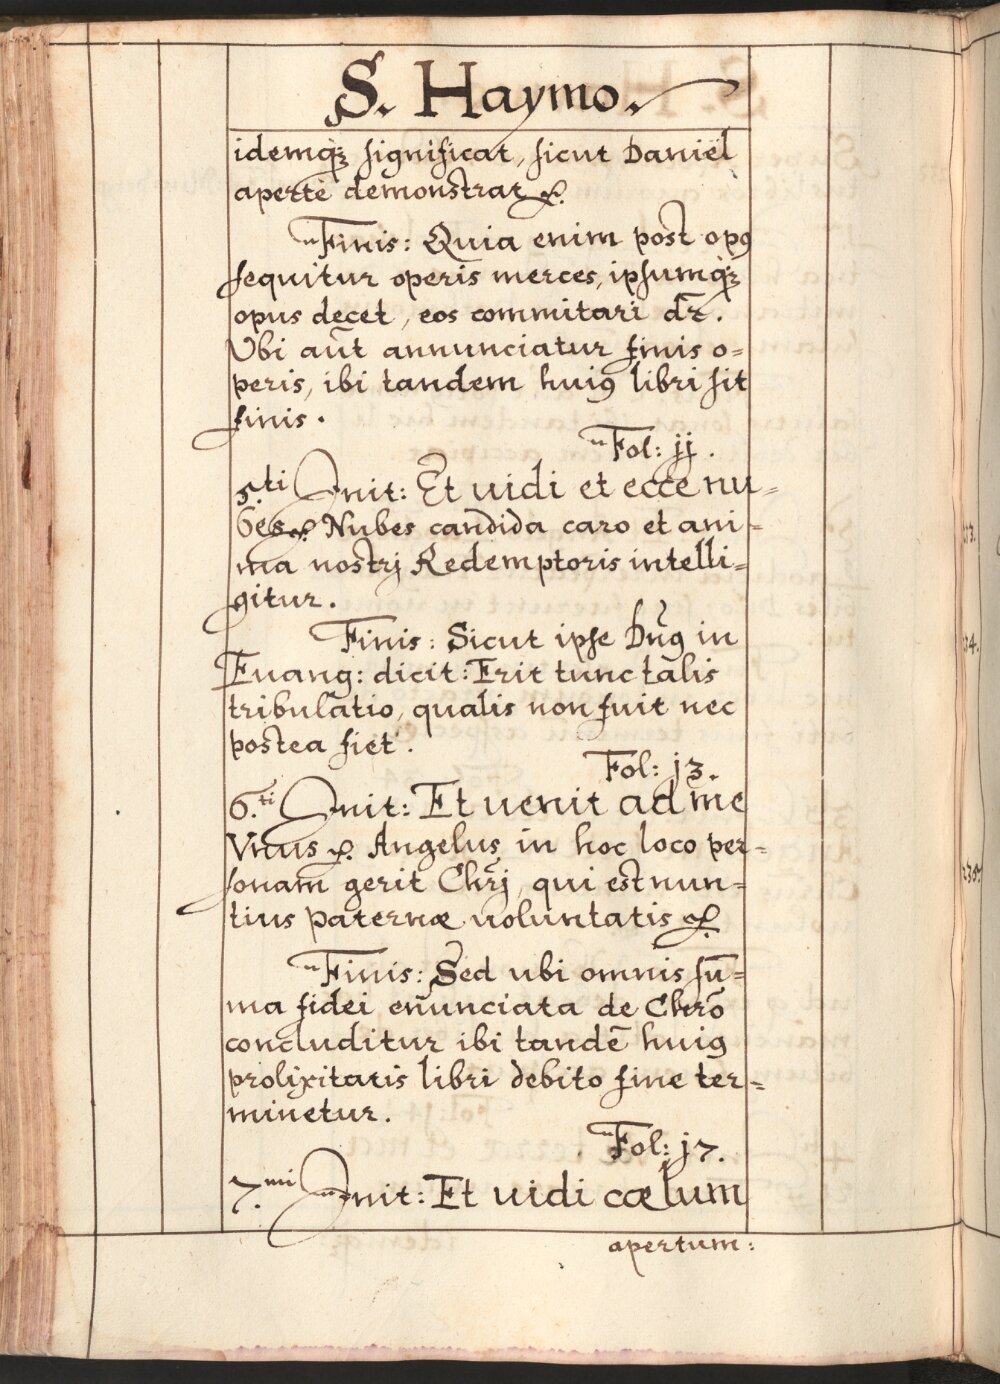 S. Haymo.
idemq; significat, sicut Daniël
apertè demonstrat &.
Finis: Quia enim post opꝰ
sequitur operis merces, ipsumq;
opus decet, eos commitari dr̄.
Vbi aūt annunciatur finis o=
peris, ibi tandem huiꝰ libri sit
finis.
Fol: jj.
5.ti Init: Et uidi et ecce nu=
bes &. Nubes candida caro et ani=
ma nostrj Redemptoris intelli=
gitur.
Finis: Sicut ipse Dn̄ꝰ in
Euang: dicit: Erit tunc talis
tribulatio, qualis non fuit nec
postea fiet.
Fol: j3.
6.ti Init: Et uenit ad me
Vnus &. Angelus in hoc loco per=
sonam gerit Chr̄j, qui est nun=
tius paternæ uoluntatis &.
Finis: Sed ubi omnis sū=
ma fidei en̄unciata de Chrō
concluditur ibi tandē huiꝰ
prolixitatis libri debito fine ter=
minetur.
Fol: j7.
7.mi Init: Et uidi cælum
apertum:
33.
34.
235.